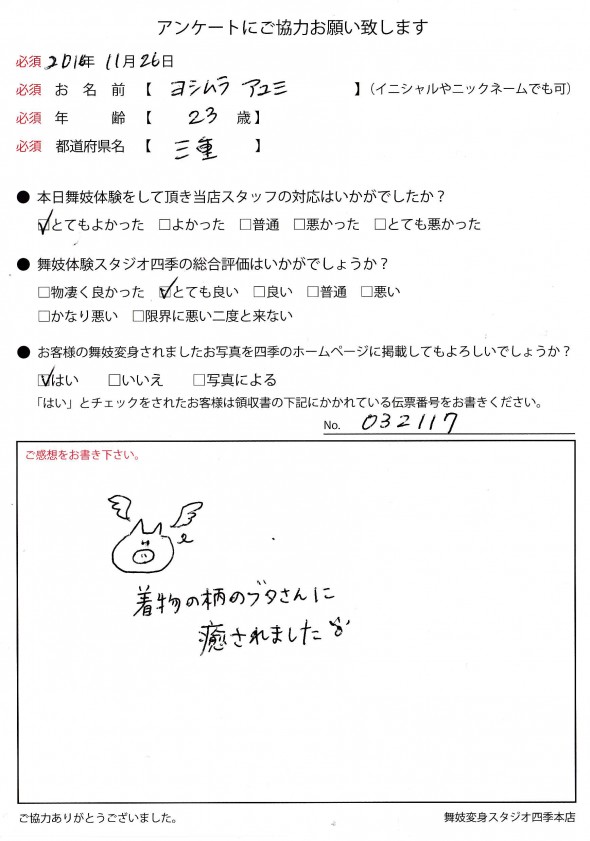 アンケートにご協力お願い致します
必須 2016年 11月 26日
必須 お 名 前 【 ヨシムラ アユミ 】（イニシャルやニックネームでも可）
必須 年 齢 【 23 歳】
必須 都道府県名 【 三重 】
● 本日舞妓体験をして頂き当店スタッフの対応はいかがでしたか？
☑とてもよかった □よかった □普通 □悪かった □とても悪かった
● 舞妓体験スタジオ四季の総合評価はいかがでしょうか？
□物凄く良かった ☑とても良い □良い □普通 □悪い
□かなり悪い □限界に悪い二度と来ない
● お客様の舞妓変身されましたお写真を四季のホームページに掲載してもよろしいでしょうか？
☑はい □いいえ □写真による
「はい」とチェックをされたお客様は領収書の下記にかかれている伝票番号をお書きください。
No. 032117
ご感想をお書き下さい。
着物の柄のブタさんに
癒されました
ご協力ありがとうございました。 舞妓変身スタジオ四季本店